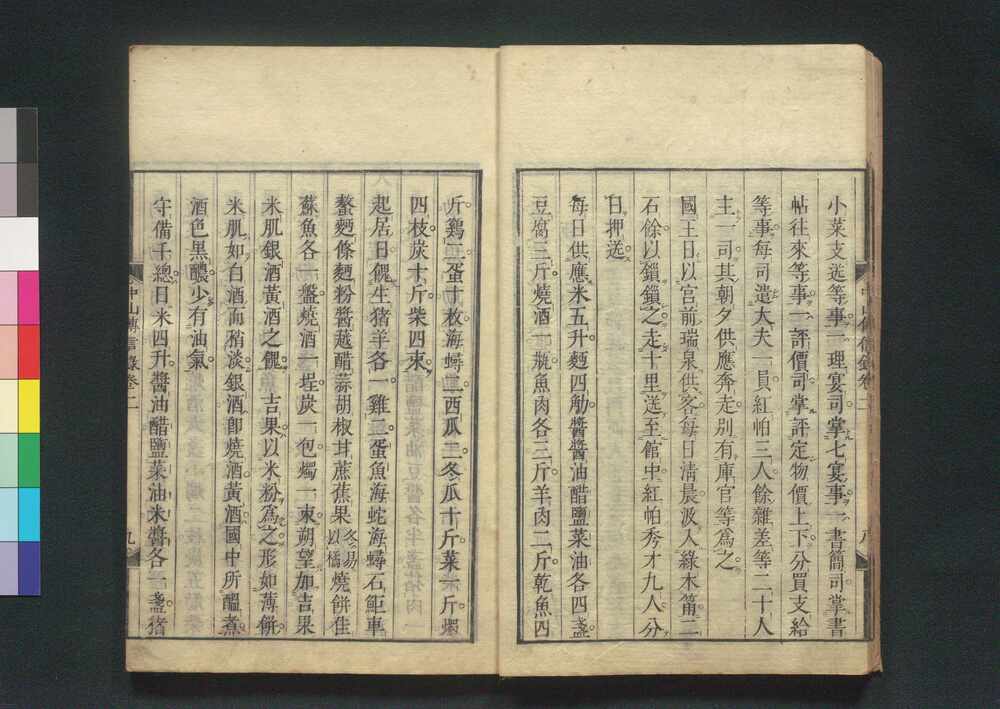 小菜支送等事一理宴司掌七宴事一書簡司掌書
帖往來等事一評價司掌評定物價上下分買支給
等事每司遣大夫一員紅帕三人餘雜差等二十人
主一司其朝夕供應奔走別有庫官等爲之
國王日以宮前瑞泉供客每日淸晨汲入綠木筩二
石餘以鎖鎖之走十里送至館中紅帕秀才九人分
日押送
每日供應米五升麵四觔醬醬油醋鹽菜油各四盞
豆腐三斤燒酒一瓶魚肉各三斤羊肉二斤乾魚四
斤鷄二蛋十枚海蟳二西瓜三冬瓜十斤菜一斤燭
四枝炭十斤柴四束
起居日餽生猪羊各一雞二蛋魚海蛇海蟳石鉅車
螯麵條麵粉醬越醋蒜胡椒甘蔗蕉果冬易以橘燒餅佳
蘇魚各一盤燒酒一埕炭一包燭一束朔望加吉果
米肌銀酒黃酒之餽吉果以米粉爲之形如薄餅
米肌如白酒而稍淡銀酒卽燒酒黃酒國中所醞煮
酒色黑醲少有油氣
守備千總日米四升醬油醋鹽菜油米醬各一盞猪
中山傳信錄卷二
八
中山傳信錄卷二
九